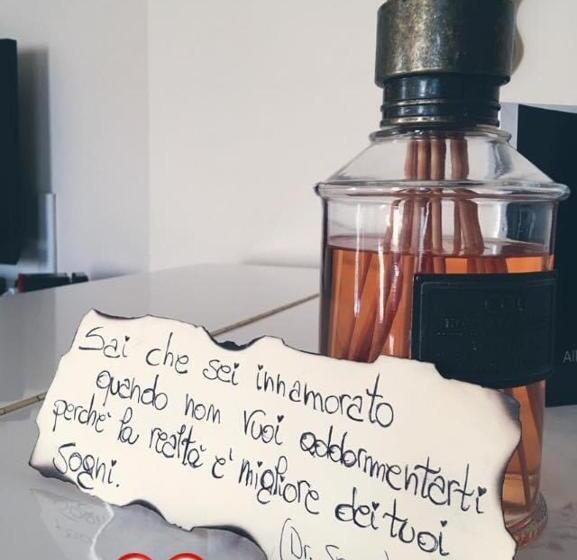 Sai che sei innamorato
quando non vuoi addormentarti
perché la realtà è migliore dei tuoi
sogni.
(Dr.